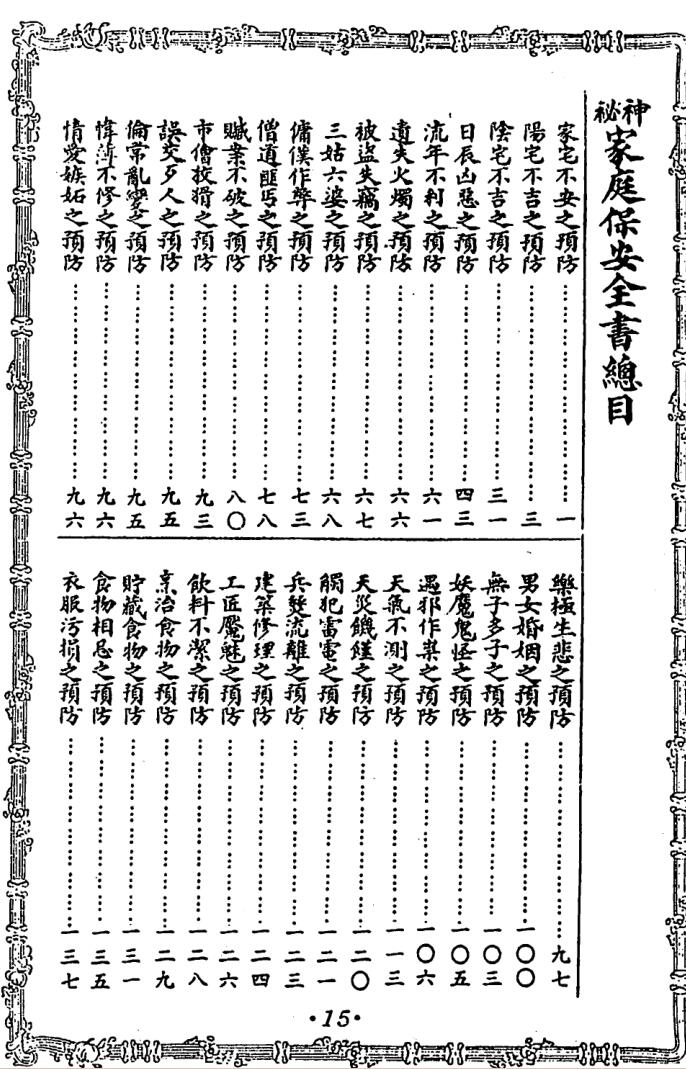 神秘家庭保安全書總目
家宅不安之預防……一
陽宅不吉之預防……三
陰宅不吉之預防……三一
日辰凶惡之預防……四三
流年不利之預防……六一
遺失火燭之預防……六六
被盜失竊之預防……六七
三姑六婆之預防……六八
傭僕作弊之預防……七三
僧道匪丐之預防……七八
賊案不破之預防……八〇
市儈狡猾之預防……九三
誤交歹人之預防……九五
倫常亂變之預防……九五
帷薄不修之預防……九六
情愛嫉妬之預防……九六
樂極生悲之預防……九七
男女婚姻之預防……一〇〇
無子多子之預防……一〇三
妖魔鬼怪之預防……一〇五
遇邪作祟之預防……一〇六
天氣不測之預防……一一三
天災饑饉之預防……一二〇
觸犯雷電之預防……一二一
兵燹流離之預防……一二三
建築修理之預防……一二四
工匠魘魅之預防……一二六
飲料不潔之預防……一二八
烹治食物之預防……一二九
貯藏食物之預防……一三一
食物相忌之預防……一三五
衣服污損之預防……一三七
·15·